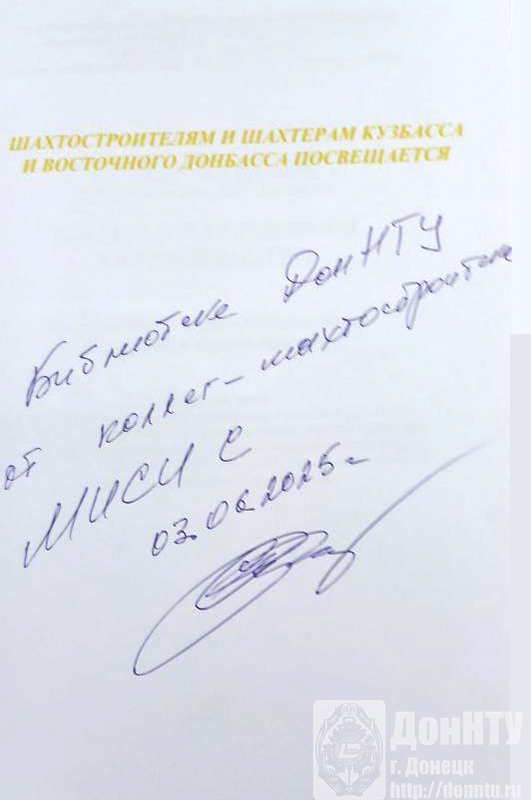 ШАХТОСТРОИТЕЛЯМ И ШАХТЕРАМ КУЗБАССА
И ВОСТОЧНОГО ДОНБАССА ПОСВЕЩАЕТСЯ
Библиотеке ДонНТУ
от коллег-шахтостроителе
МИСИС
03.06.2025г
ДонНТУ
г. Донецк
http://donntu.ru